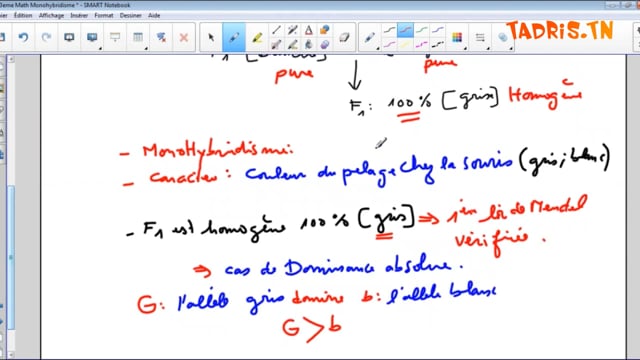 3eme Math Monohybridisme * - SMART Notebook
TADRIS.TN
Édition Affichage Insérer Format Outils Dessin Aide
pure pure
F1 : 100 % [gris] Homogène
- MonoHybridisme :
- Caractère : Couleur du pelage chez la souris (gris ; blanc)
- F1 est homogène 100 % [gris] ⇒ 1ère loi de Mendel
vérifiée.
⇒ cas de Dominance absolue.
G : l'allèle gris domine b : l'allèle blanc
G > b